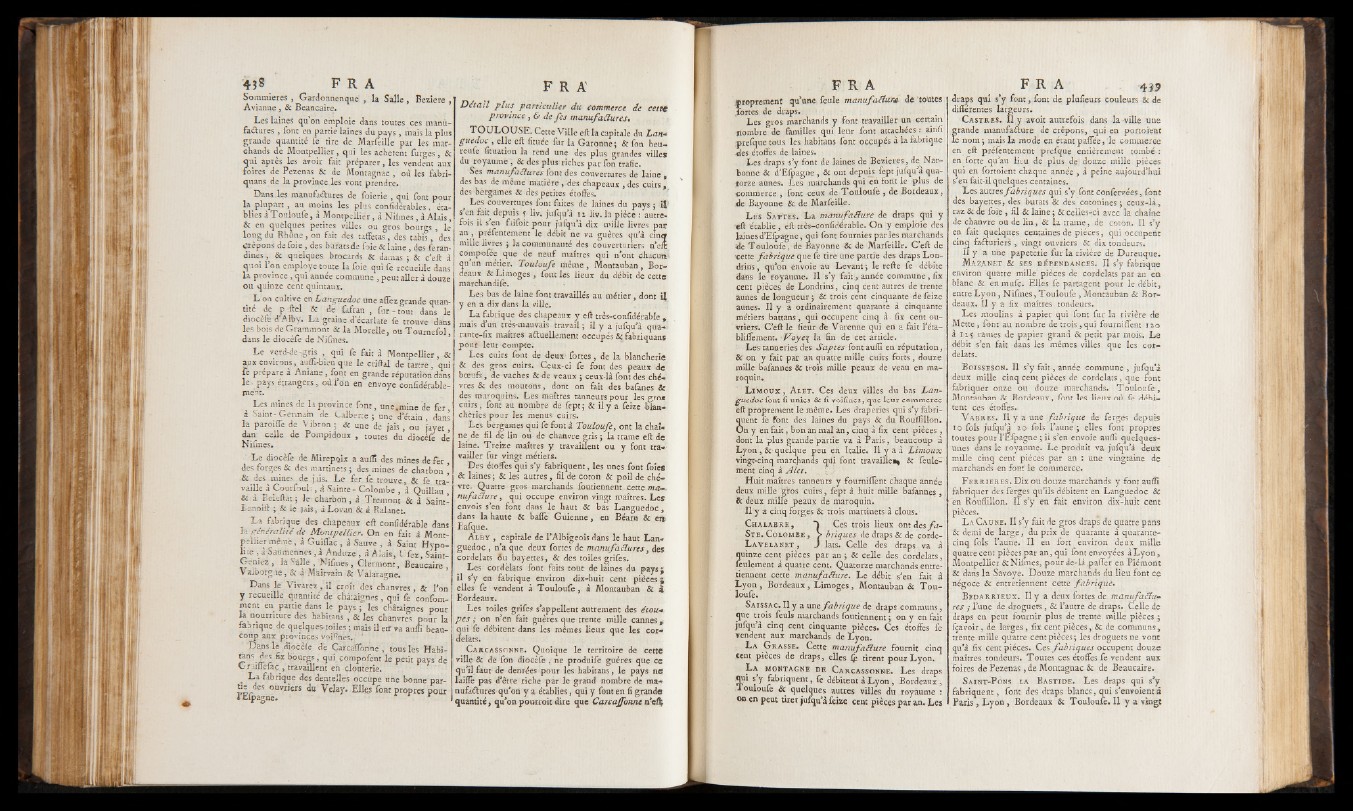 438 F R A
Sommieres, Gardonnenque, la Salle, Beziere,
Avianne, & Beaucaire.
Les laines qu'on emploie dans toutes ces manu-
factures, sont en partie laines du pays, mais la plus
grande quantité se tire de Marseille par les mar-
chands de Montpellier, qui les achetent surges, &
qui après les avoir fait préparer, les vendent aux
foires de Pezenas & de Montagnac, où les fabri-
quans de la province les vont prendre.
Dans les manufactures de soierie, qui sont pour
la plupart, au moins les plus considérables, éta-
blies à Toulouse, à Montpellier, à Nismes, à Alais,
& en quelques petites villes ou gros bourgs, le
long du Rhône, on fait des taffetas, des tabis, des
crépons de soie, des burats de soie & laine, des feran-
dines, & quelques brocards & damas; & c'est à
quoi l'on employe toute la soie qui se recueille dans
la province, qui année commune, peut aller à douze
ou quinze cent quintaux.
L'on cultive en Languedoc une assez grande quan-
tité de pastel & de safran, sur-tout dans le
diocèse d'Alby. La graine d'écarlate se trouve dans
les bois de Grammont & la Morelle, ou Tournesol,
dans le diocèse de Nismes.
Le verd-de-gris, qui se fait à Montpellier, &
aux environs, aussi-bien que le cristal de tartre, qui
se prépare à Aniane, sont en grande réputation dans
les pays étrangers, où l'on en envoye considérable-
ment.
Les mines de la province sont, une mine de fer,
à Saint-Germain de Calberte; une d'étain, dans
la paroisse de Vibron; & une de jais, ou jayet,
dans celle de Pompidoux, toutes du diocèse de
Nismes.
Le diocèse de Mirepoix a aussi des mines de fer,
des forges & des martinets; des mines de charbon,
& des mines de jais. Le fer se trouve, & se tra-
vaille à Coursoul, à Sainte-Colombe, à Quillan,
& à Belestat; le charbon, à Tremont & à Saint-
Benoît; & le jais, à Lovan & à Ralanet.
La fabrique des chapeaux est considérable dans
la généralité de Montpellier. On en fait à Mont-
pellier même, à Guissac, à Sauve, à Saint Hypo-
lite, à Saumennes, à Anduze, à Alais, Usez, Saint-
Geniez, la Salle, Nismes, Clermont, Beaucaire,
Valborgne, & à Mairvain & Valaragne.
Dans le Vivarez, il croît des chanvres, & l'on
y recueille quantité de châtaignes, qui se consom-
ment en partie dans le pays; les châtaignes pour
la nourriture des habitans, & les chanvres pour la
fabrique de quelques toiles; mais il en va aussi beau-
coup aux provinces voisines.
Dans le diocèse de Carcassonne, tous les Habi-
tans des six bourgs, qui composent le petit pays de
Craissessac, travaillent en clouterie.
La fabrique des dentelles occupe une bonne par-
tie des ouvriers du Velay. Elles sont propres pour
l'Espagne.
F R A
Détail plus particulier du commerce de cette
province, & de ses manufactures.
TOULOUSE. Cette Ville est la capitale du Lan-
guedoc, elle est située sur la Garonne; & son heu-
reuse situation la rend une des plus grandes villes
du royaume, & des plus riches par son trafic.
Ses manufactures sont des couvertures de laine,
des bas de même matière, des chapeaux, des cuirs,
des bergames & des petites étoffes.
Les couvertures sont faites de laines du pays; il
s'en fait depuis 5 liv. jusqu'à 12 liv. la pièce: autre-
fois il s'en faisoit pour jusqu'à dix mille livres par
an, présentement le débit ne va guères qu'à cinq
mille livres; la communauté des couvertures n'est
composée que de neuf maîtres qui n'ont chacun
qu'un métier. Toulouse même, Montauban, Bor-
deaux & Limoges, sont les lieux du débit de cette
marchandise.
Les bas de laine sont travaillés au métier, dont il
y en a dix dans la ville.
La fabrique des chapeaux y est très-considérable,
mais d'un très-mauvais travail; il y a jusqu'à qua-
rante-six maîtres actuellement occupés & fabriquans
pour leur compte.
Les cuirs sont de deux sortes, de la blancherie
& des gros cuirs. Ceux-ci se font des peaux de
bœufs, de vaches & de veaux; ceux-là sont des ché-
vres & des moutons, dont on fait des basanes &
des maroquins. Les maîtres tanneurs pour les gros
cuirs, sont au nombre de sept; & il y a seize blan-
chéries pour les menus cuirs.
Les bergames qui se font à Toulouse, ont la chaî-
ne de fil de lin ou de chanvre gris; la trame est de
laine. Treize maîtres y travaillent ou y font tra-
vailler sur vingt métiers.
Des étoffes qui s'y fabriquent, les unes sont soies
& laines; & les autres, fil de coton & poil de ché-
vre. Quatre gros marchands soutiennent cette ma-
nufacture, qui occupe environ vingt maîtres. Les
envois s'en font dans le haut & bas Languedoc,
dans la haute & basse Guienne, en Béarn & en
Basque.
ALBY, capitale de l'Albigeois dans le haut Lan-
guedoc, n'a que deux sortes de manufactures, des
cordelats ou bayettes, & des toiles grises.
Les cordelats sont faits tout de laines du pays;
il s'y en fabrique environ dix-huit cent pièces;
elles se vendent à Toulouse, à Montauban & à
Bordeaux.
Les toiles grises s'appellent autrement des étou-
pes; on n'en fait guères que trente mille cannes,
qui se débitent dans les mêmes lieux que les cor-
delats.
CARCASSONNE. Quoique le territoire de cette
ville & de son diocèse, ne produise guères que ce
qu'il faut de denrées pour les habitans, le pays ne
laisse pas d'être riche par le grand nombre de ma-
nufactures qu'on y a établies, qui y sont en si grande
quantité, qu'on pourroit dire que Carcassonne n'est
F R A
proprement qu'une seule manufacture de toutes
sortes de draps.
Les gros marchands y font travailler un certain
nombre de familles qui leur sont attachées: ainsi
presque tous les habitans sont occupés à la fabrique
des étoffes de laines.
Les draps s'y font de laines de Bezieres, de Nar-
bonne & d'Espagne, & ont depuis sept jusqu'à qua-
torze aunes. Les marchands qui en font le plus de
commerce, sont ceux de Toulouse, de Bordeaux,
de Bayonne & de Marseille.
LES SAPTES. La manufacture de draps qui y
est établie, est très-considérable. On y emploie des
laines d'Espagne, qui sont fournies par les marchands
de Toulouse, de Bayonne & de Marseille. C'est de
cette fabrique que se tire une partie des draps Lon-
drins, qu'on envoie au Levant; le reste se débite
dans le royaume. Il s'y fait, année commune, six
cent pièces de Londrins, cinq cent autres de trente
aunes de longueur; & trois cent cinquante de seize
aunes. Il y a ordinairement quarante à cinquante
métiers battans, qui occupent cinq à six cent ou-
vriers. C'est le sieur de Varenne qui en a fait l'éta-
blissement. Voyez la fin de cet article.
Les tanneries des Saptes sont aussi en réputation,
& on y fait par an quatre mille cuirs forts, douze
mille basannes & trois mille peaux de venu en ma-
roquin.
LIMOUX, ALET. Ces deux villes du bas Lan-
guedoc sont si unies & si voisines, que leur commerce
est proprement le même. Les draperies qui s'y fabri-
quent se font des laines du pays & du Roussillon.
On y en fait, bon an mal an, cinq à six cent pièces,
dont la plus grande partie va à Paris, beaucoup à
Lyon, & quelque peu en Italie. Il y a à Limoux
vingt-cinq marchands qui font travailler, & seule-
ment cinq à Alet.
Huit maîtres tanneurs y fournissent chaque année
deux mille gros cuirs, sept à huit mille basannes,
& deux mille peaux de maroquin.
Il y a cinq forges & trois martinets à clous.
CHALABRE, STE. COLOMBE, LAVELANET, } Ces trois lieux ont des fa-
briques de draps & de corde-
lats. Celle des draps va à
quinze cent pièces par an; & celle des cordelats,
seulement à quatre cent. Quatorze marchands entre-
tiennent cette manufacture. Le débit s'en fait à
Lyon, Bordeaux, Limoges, Montauban & Tou-
louse.
SAISSAC. Il y a une fabrique de draps communs,
que trois seuls marchands soutiennent; on y en fait
jusqu'à cinq cent cinquante pièces. Ces étoffes se
vendent aux marchands de Lyon.
LA GRASSE. Cette manufacture fournit cinq
cent pièces de draps, elles se tirent pour Lyon.
LA MONTAGNE DE CARCASSONNE. Les draps
qui s'y fabriquent, se débitent à Lyon, Bordeaux,
Toulouse & quelques autres villes du royaume:
on en peut tirer jusqu'à seize cent pièces par an. Les
F R A 439
draps qui s'y font, sont de plusieurs couleurs & de
différentes largeurs.
CASTRES. Il y avoit autrefois dans la ville une
grande manufacture de crépons, qui en portoient
le nom; mais la mode en étant passée, le commerce
en est présentement presque entièrement tombé:
en sorte qu'au lieu de plus de douze mille pièces
qui en sortoient chaque année, à peine aujourd'hui
s'en fait-il quelques centaines.
Les autres fabriques qui s'y sont conservées, sont
des bayettes, des burats & des cotonines; ceux-là,
raz & de soie, fil & laine; & celles-ci avec la chaîne
de chanvre ou de lin, & la trame, de coton. Il s'y
en fait quelques centaines de pièces, qui occupent
cinq facturiers, vingt ouvriers & dix tondeurs.
Il y a une papeterie sur la rivière de Durenque.
MAZANET & SES DÉPENDANCES. Il s'y fabrique
environ quatre mille pièces de cordelats par an en
blanc & en musc. Elles se partagent pour le débit,
entre Lyon, Nismes, Toulouse, Montauban & Bor-
deaux. Il y a six maîtres tondeurs.
Les moulins à papier qui sont sur la rivière de
Mette, sont au nombre de trois, qui fournissent 120
à 125 rames de papier grand & petit par mois. Le
débit s'en fait dans les mêmes villes que les cor-
delats.
BOISSESON. Il s'y fait, année commune, jusqu'à
deux mille cinq cent pièces de cordelats, que font
fabriquer onze ou douze marchands. Toulouse,
Montauban & Bordeaux, sont les lieux où se débi-
tent ces étoffes.
VABRES. Il y a une fabrique de serges depuis
10 sols jusqu'à 20 sols l'aune; elles sont propres
toutes pour l'Espagne; il s'en envoie aussi quelques-
unes dans le royaume. Le produit va jusqu'à deux
mille cinq cent pièces par an: une vingtaine de
marchands en font le commerce.
FERRIERES. Dix ou douze marchands y font aussi
fabriquer des serges qu'ils débitent en Languedoc &
en Roussillon. Il s'y en fait environ dix-huit cent
pièces.
LA CAUNE. Il s'y fait de gros draps de quatre pans
& demi de large, du prix de quarante à quarante-
cinq sols l'aune. Il en sort environ deux mille
quatre cent pièces par an, qui sont envoyées à Lyon,
Montpellier & Nismes, pour de-là passer en Piémont
& dans la Savoye. Douze marchands du lieu font ce
négoce & entretiennent cette fabrique.
BEDARRIEUX. Il y a deux sortes de manufactu-
res; l'une de droguets, & l'autre de draps. Celle de
draps en peut fournir plus de trente mille pièces;
sçavoir, de larges, six cent pièces, & de communs,
trente mille quatre cent pièces; les droguets ne vont
qu'à six cent pièces. Ces fabriques occupent douze
maîtres tondeurs. Toutes ces étoffes se vendent aux
foires de Pezenas, de Montagnac & de Beaucaire.
SAINT-PONS LA BASTIDE. Les draps qui s'y
fabriquent, sont des draps blancs, qui s'envoient à
Paris, Lyon, Bordeaux & Toulouse. Il y a vingt